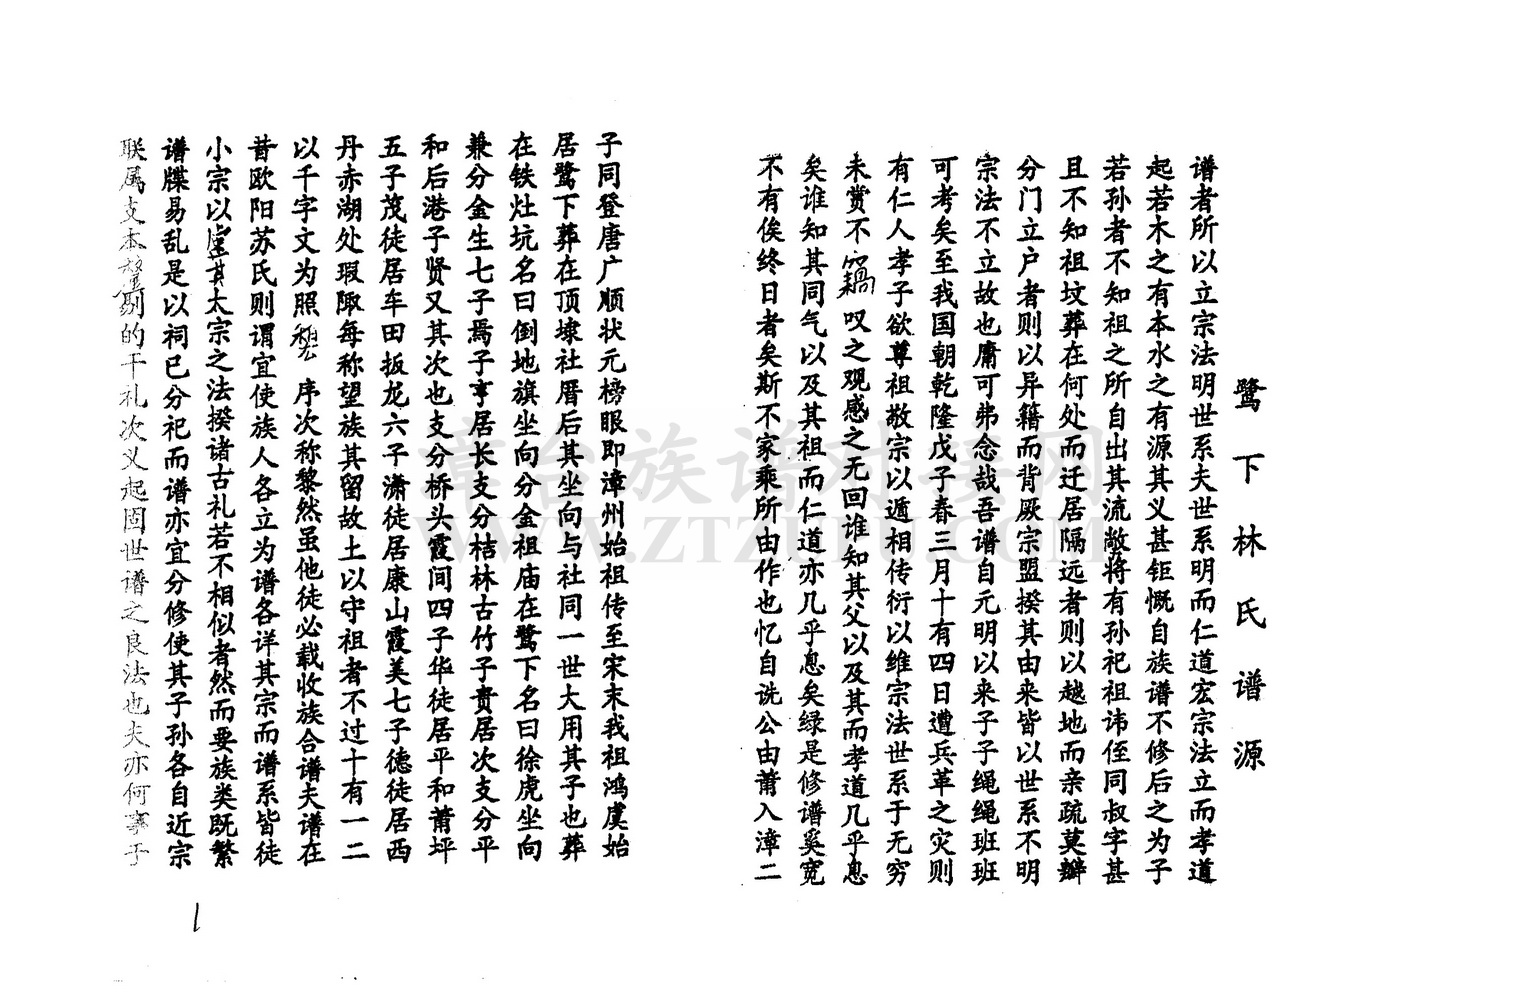 鹭下林氏谱源
谱者所以立宗法明世系夫世系明而仁道宏宗法立而孝道
起若木之有本水之有源其义甚钜慨自族谱不修后之为子
若孙者不知祖之所自出其流敝将有孙祀祖讳侄同叔字甚
且不知祖坟葬在何处而迁居隔远者则以越地而亲疏莫辩
分门立户者则以异籍而背厥宗盟揆其由来皆以世系不明
宗法不立故也庸可弗念哉吾谱自元明以来子子绳绳班班
可考矣至我国朝乾隆戊子春三月十有四日遭兵革之灾则
有仁人孝子欲尊祖敬宗以遁相传衍以维宗法世系于无穷
未赏不 叹之观感之无回谁知其父以及其而孝道几乎息
矣谁知其同气以及其祖而仁道亦几乎息矣绿是修谱奚宽
不有俟终日者矣斯不家乘所由作也忆自诜公由莆入漳二
子同登唐广顺状元榜眼即漳州始祖传至宋末我祖鸿虞始
居鹭下葬在顶埭社厝后其坐向与社同一世大用其子也葬
在铁灶坑名曰倒地旗坐向分金祖庙在鹭下名曰徐虎坐向
兼分金生七子焉子亨居长支分桔林古竹子贵居次支分平
和后港子贤又其次也支分桥头霞间四子华徒居平和莆坪
五子茂徒居车田扳龙六子潇徒居康山霞美七子德徒居西
丹赤湖处瑕陬每称望族其留故土以守祖者不过十有一二
以千字文为照 序次称黎然虽他徒必载收族合谱夫谱在
昔欧阳苏氏则谓宜使族人各立为谱各详其宗而谱系皆徒
小宗以 其太宗之法揆诸古礼若不相似者然而要族类既繁
谱牒易乱是以祠已分祀而谱亦宜分修使其子孙各自近宗
联属支本 剔的干礼次义起固世谱之良法也夫亦何事于
1
章台族谱对接网
WWW.ZTZUPU.COM